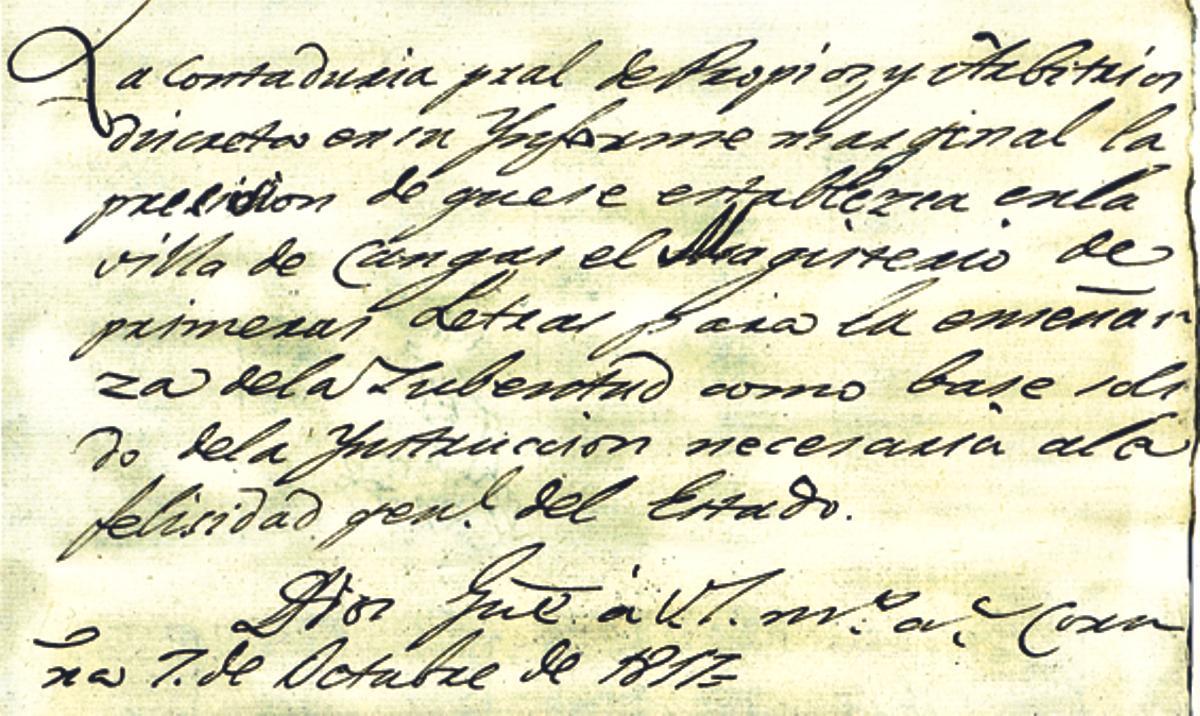 La Contaduria pral de Propios, y Arbitrios
discreta en su Ynforme marginal la
presision de que se establezca en la
villa de Cangas el Magisterio de
primeras Letras para la enseñan
za de la Jubentud como base soli
do de la Ynstruccion necesaria a la
felisidad genl. del Estado.
Dios Gue á V.S. ms. as. Coru
ña 7. de Octubre de 1817=